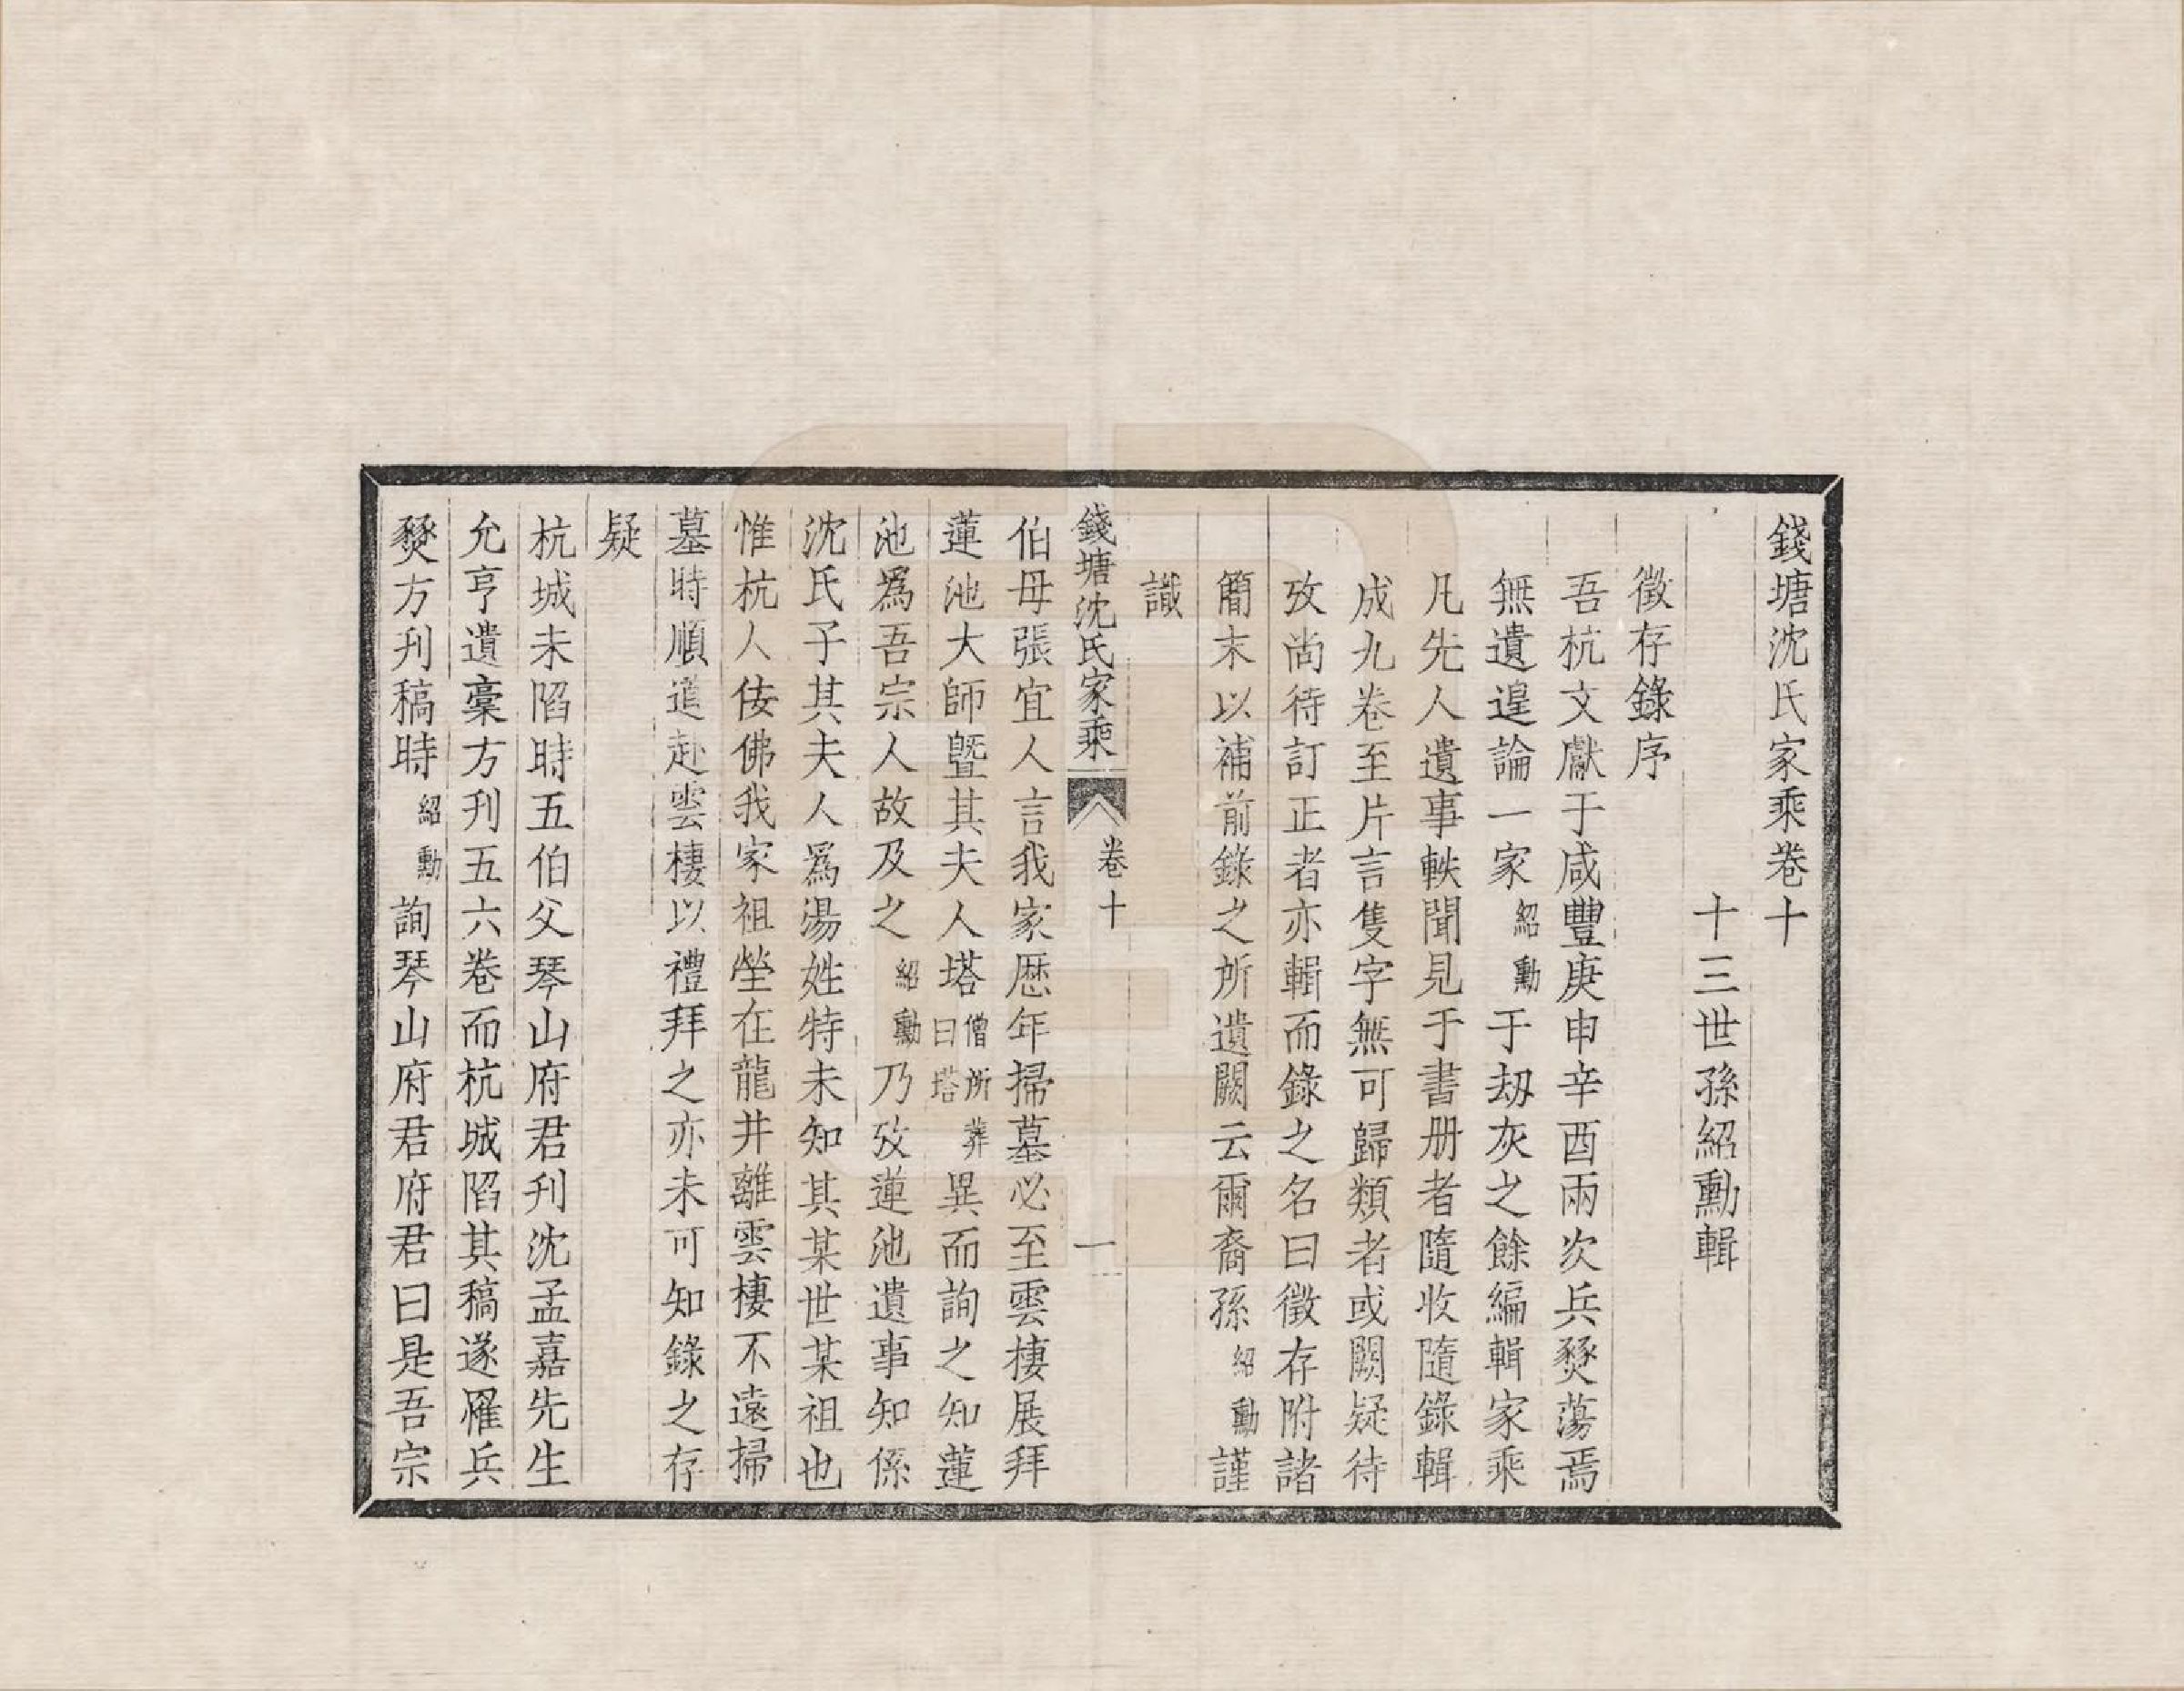 錢塘沈氏家乘卷十
十三世孫紹勳輯
徵存錄序
吾杭文獻于咸豐庚申辛酉兩次兵燹蕩焉
無遺遑論一家紹勳于刼灰之餘編輯家乘
凡先人遺事軼聞見于書册者隨收隨錄輯
成九卷至片言隻字無可歸類者或闕疑待
攷尚待訂正者亦輯而錄之名曰徵存附諸
簡末以補前錄之所遺闕云爾裔孫紹勳謹
識
錢塘沈氏家乘 卷十 一
伯母張宜人言我家歷年掃墓必至雲棲展拜
蓮池大師曁其夫人塔僧所葬曰塔異而詢之知蓮
池爲吾宗人故及之紹勳乃攷蓮池遺事知係
沈氏子其夫人爲湯姓特未知其某世某祖也
惟杭人佞佛我家祖塋在龍井離雲棲不遠掃
墓時順道赴雲棲以禮拜之亦未可知錄之存
疑
杭城未陷時五伯父琴山府君刋沈孟嘉先生
允亨遺稾方刋五六卷而杭城陷其稿遂罹兵
燹方刋稿時紹勳詢琴山府君府君曰是吾宗